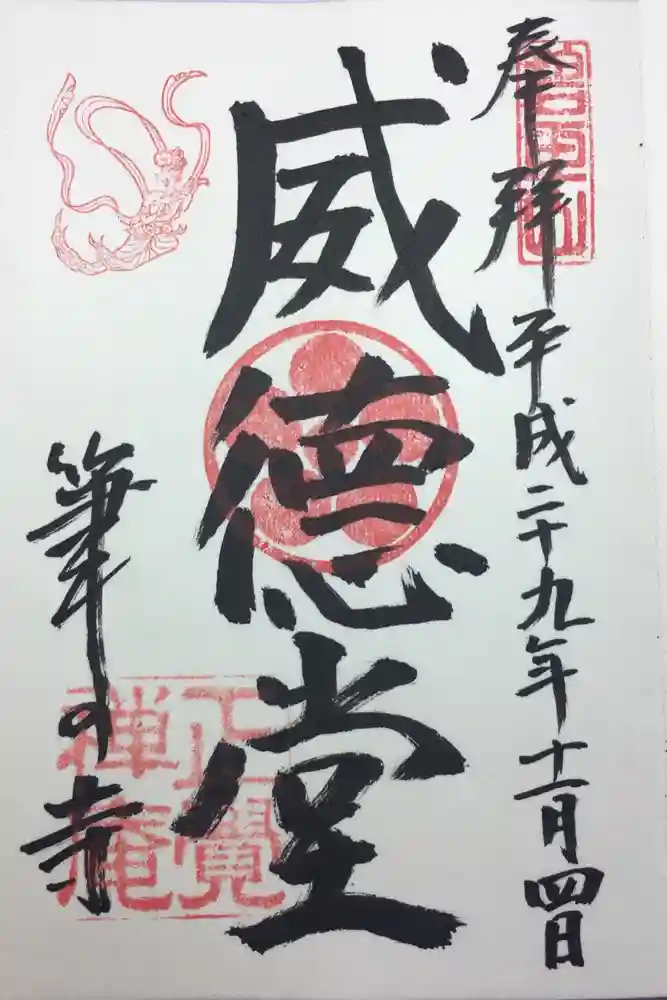 奉拝 平成二十九年十一月四日
威徳堂
筆の寺
吉田山
正覺
禅庵